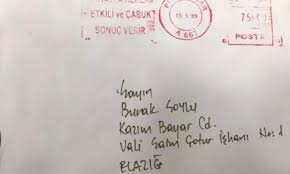 ETKİLİ ve ÇABUK
SONUÇ VERİR
15.5.99
A 66
POSTA
Sayın
Burak Soylu
Kazım Bayar Cd.
Vali Saim Çotur İşhanı No: 1
ELAZIĞ